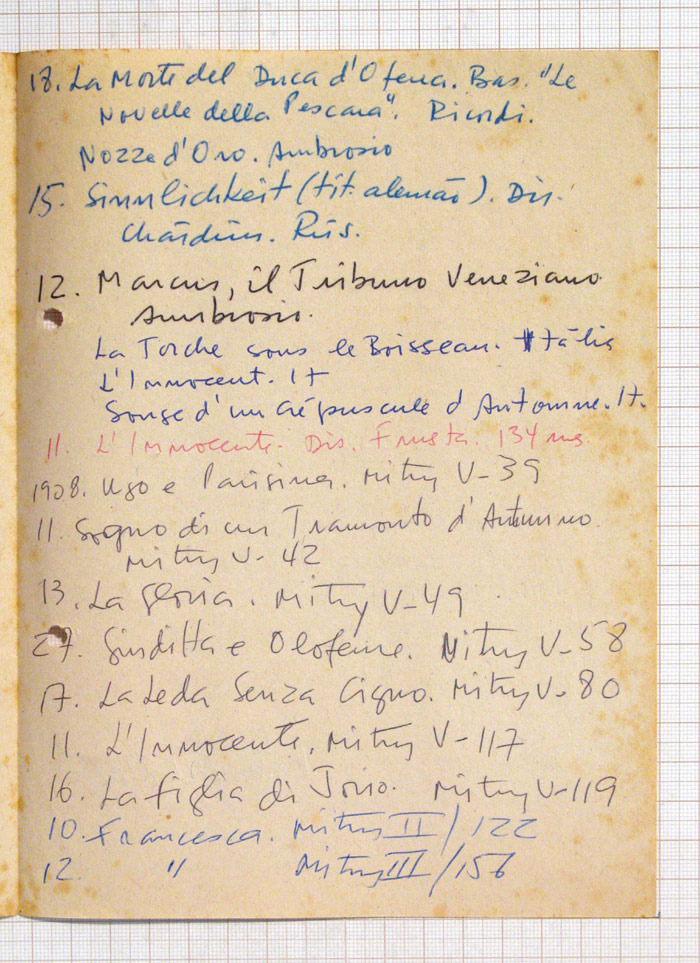 18. La Morte del Duca d'Ofena. Bas. "Le
Novelle della Pescara". Ricordi.
Nozze d'Oro. Ambrosio
15. Sinnlichkeit (tit. alemão). Dir.
Chardim. Rús.
12. Marcus, il Tribuno Veneziano
Ambrosio.
La Torche sous le Boisseau. Itália
L'Innocent. It
Songe d'un crépuscule d'Automne. It.
11. L'Innocente. Dis. Frusta. 134 ms
1908. Ugo e Parisina. Mitry V-39
11. Sogno di un Tramonto d'Autunno
Mitry V-42
13. La Gloria. Mitry V-49
27. Giuditta e Oloferne. Mitry V-58
17. La Leda Senza Cigno. Mitry V-80
11. L'Innocente. Mitry V-117
16. La figlia di Jorio. Mitry V-119
10. Francesca. Mitry II/122
12. " Mitry III/156